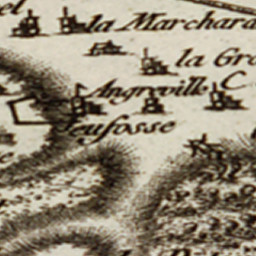 la Marchara
la Gro
Angreville C
eufosse